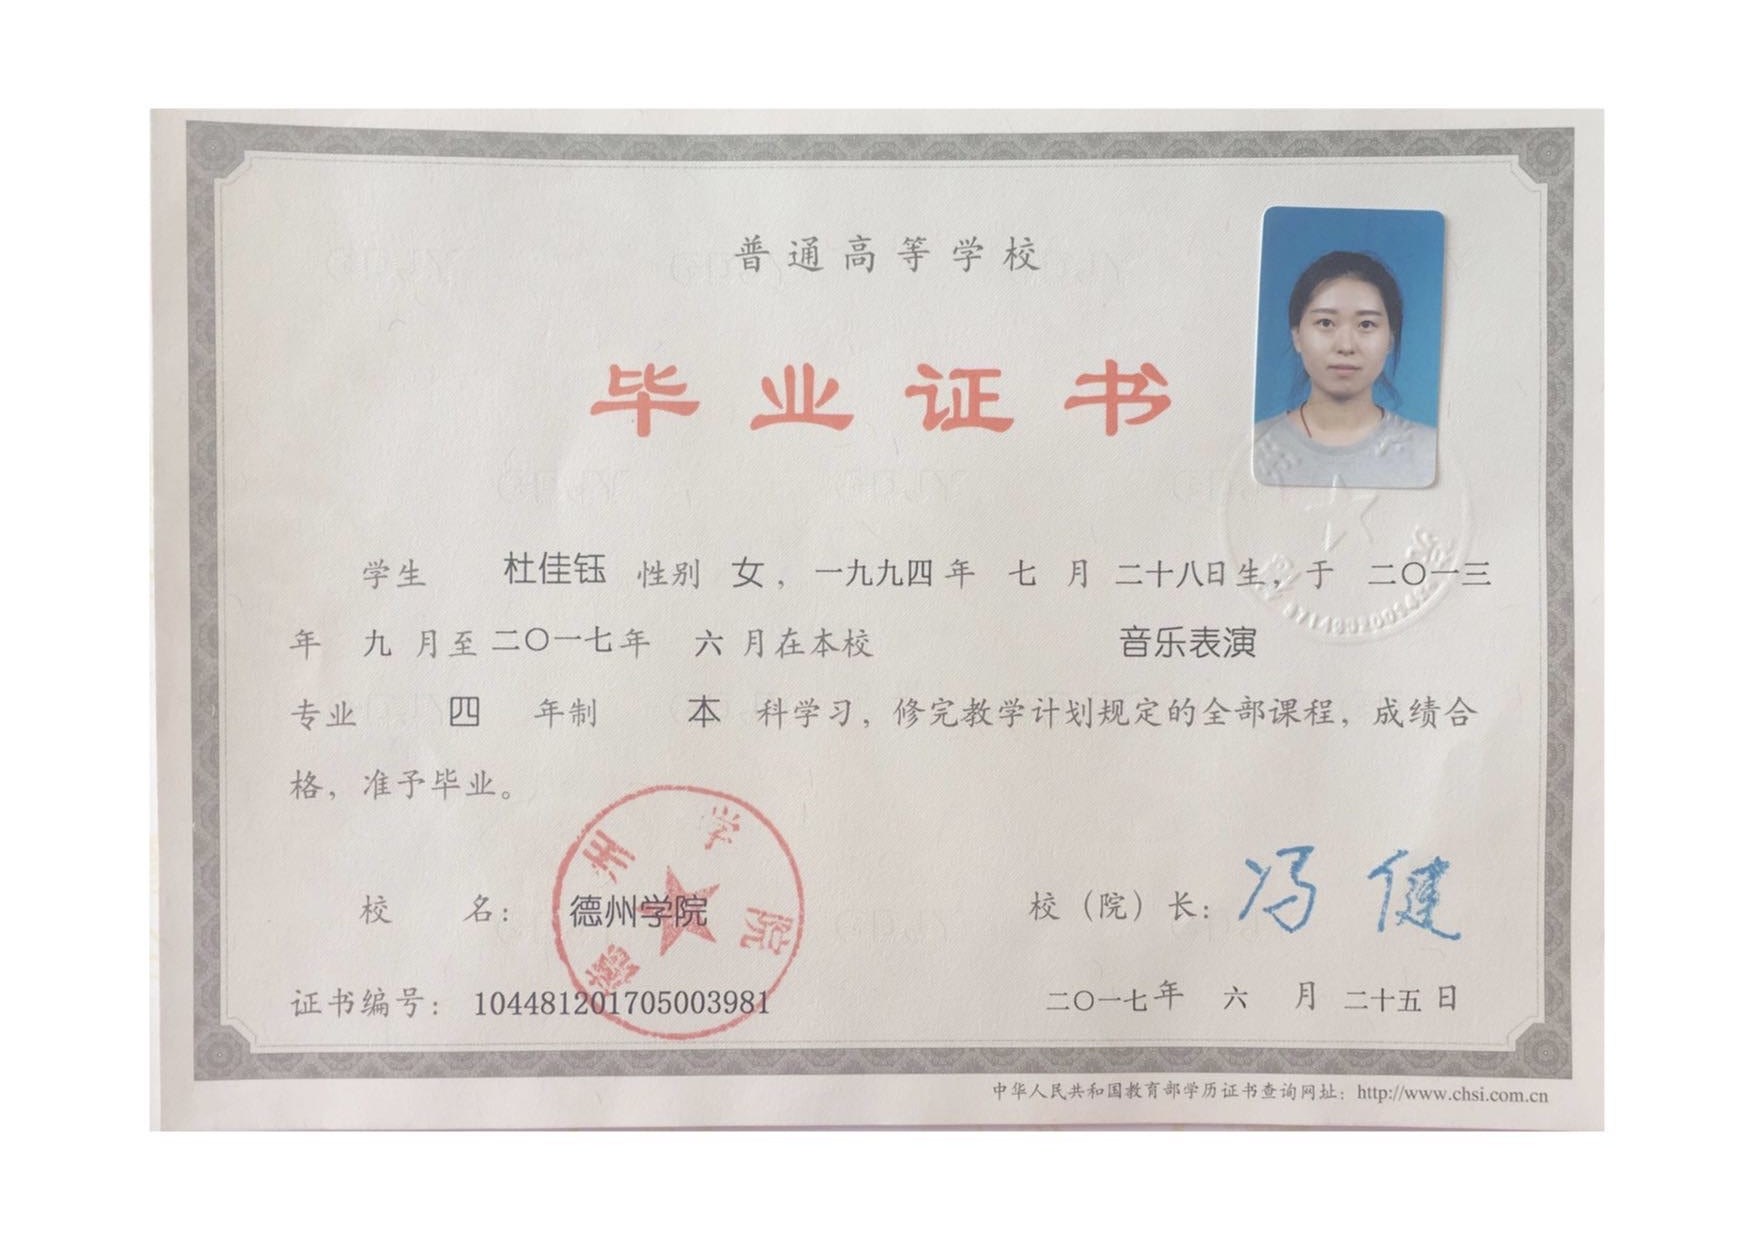 普通高等学校
毕业证书
学生 杜佳钰 性别 女，一九九四年 七 月 二十八日生，于 二〇一三
年 九 月至二〇一七年 六 月在本校 音乐表演
专业 四 年制 本 科学习，修完教学计划规定的全部课程，成绩合
格，准予毕业。
德州学院
校 名： 德州学院
校（院）长： 冯健
证书编号： 104481201705003981
二〇一七年 六 月 二十五日
中华人民共和国教育部学历证书查询网址：http://www.chsi.com.cn